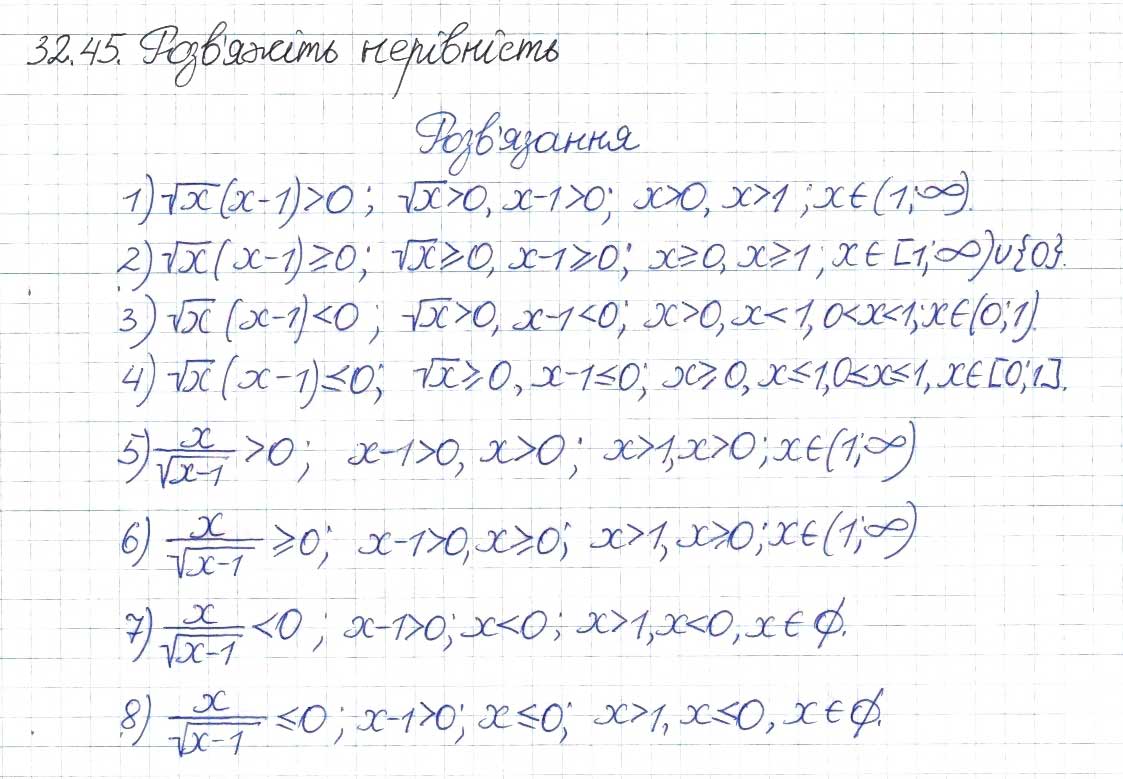 32.45. Розв'яжіть нерівність
Розв'язання
1) √x(x-1)>0; √x>0, x-1>0; x>0, x>1; x∈(1;∞).
2) √x(x-1)≥0; √x≥0, x-1≥0; x≥0, x≥1; x∈[1;∞)∪{0}.
3) √x(x-1)<0; √x>0, x-1<0; x>0, x<1, 0<x<1; x∈(0;1).
4) √x(x-1)≤0; √x≥0, x-1≤0; x≥0, x≤1, 0≤x≤1, x∈[0;1].
5) x/√(x-1) >0; x-1>0, x>0; x>1, x>0; x∈(1;∞)
6) x/√(x-1) ≥0; x-1>0, x≥0; x>1, x≥0; x∈(1;∞)
7) x/√(x-1) <0; x-1>0; x<0; x>1, x<0, x∈∅.
8) x/√(x-1) ≤0; x-1>0; x≤0; x>1, x≤0, x∈∅.